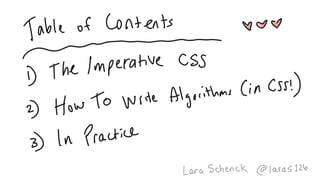 Table of Contents
1) The Imperative CSS
2) How To Write Algorithms (in CSS!)
3) In Practice
Lara Schenck @laras126